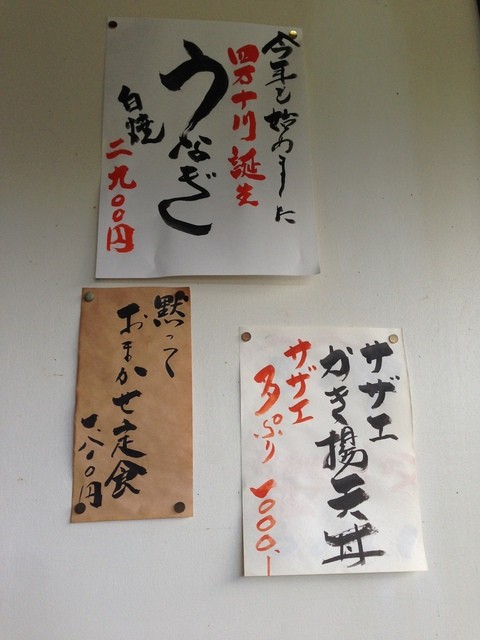 今年も始めました
四万十川誕生
うなぎ
白焼
二九〇〇円
黙って
おまかせ定食
一、八〇〇円
サザエ
かき揚天丼
サザエ
多ぷり
一〇〇〇.ー